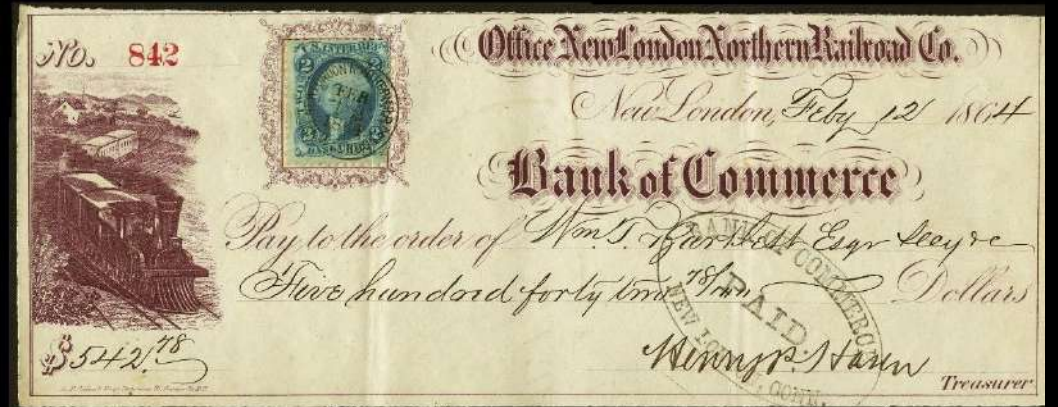 No. 842
U.S. INTER. REV.
Office New London Northern Railroad Co.
New London, Feby 12 1864
Bank of Commerce
Pay to the order of Wm. T. Esqr
Five hundred forty two 78/100 Dollars
BANK OF COMMERCE
PAID
NEW LONDON, CONN.
$542.78
Henry P. Haven
Treasurer